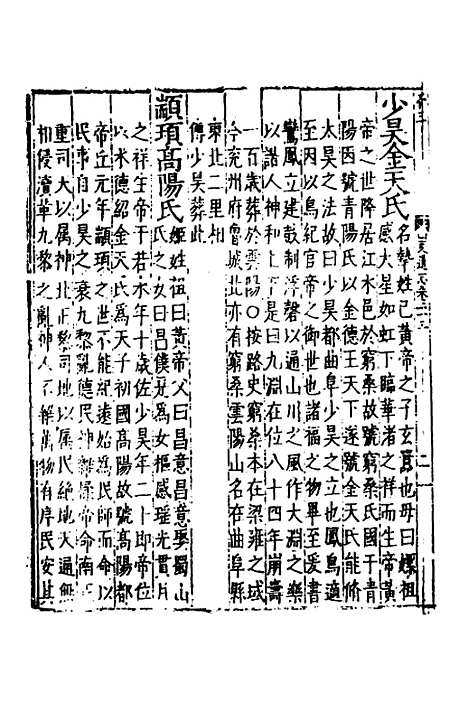 少昊金天氏名摯姓己黃帝之子玄囂也母曰嫘祖
感大星如虹下臨華渚之祥而生帝黃
帝之世降居江水邑於窮桑故號窮桑氏國于青
陽因號青陽氏以金德王天下遂號金天氏能脩
太昊之法故曰少昊都曲阜少昊之立也鳳鳥適
至因以鳥紀官帝之御世也諸福之物畢至爰書
鸞鳳立建鼓制浮磬以通山川之風作大淵之樂
以諧人神和上下是曰九淵在位八十四年崩壽
一百歲葬於雲陽○按路史窮桑本在梁雍之域
今兗州府魯城北亦有窮桑雲陽山名在曲阜縣
東北二里相
傳少昊葬此
顓頊高陽氏姬姓祖曰黃帝父曰昌意昌意娶蜀山
氏之女曰昌僕是為女樞感瑤光貫月
之祥生帝于若水年十歲佐少昊年二十即帝位
以水德紹金天氏為天子初國高陽故號高陽都
帝丘元年顓頊之世不能紀遠始為民師而命以
民事自少昊之衰九黎亂德民神雜揉帝命南正
重司天以属神北正黎司地以属民絶地天通無
相侵瀆革九黎之亂神人不雜萬物有序民安其